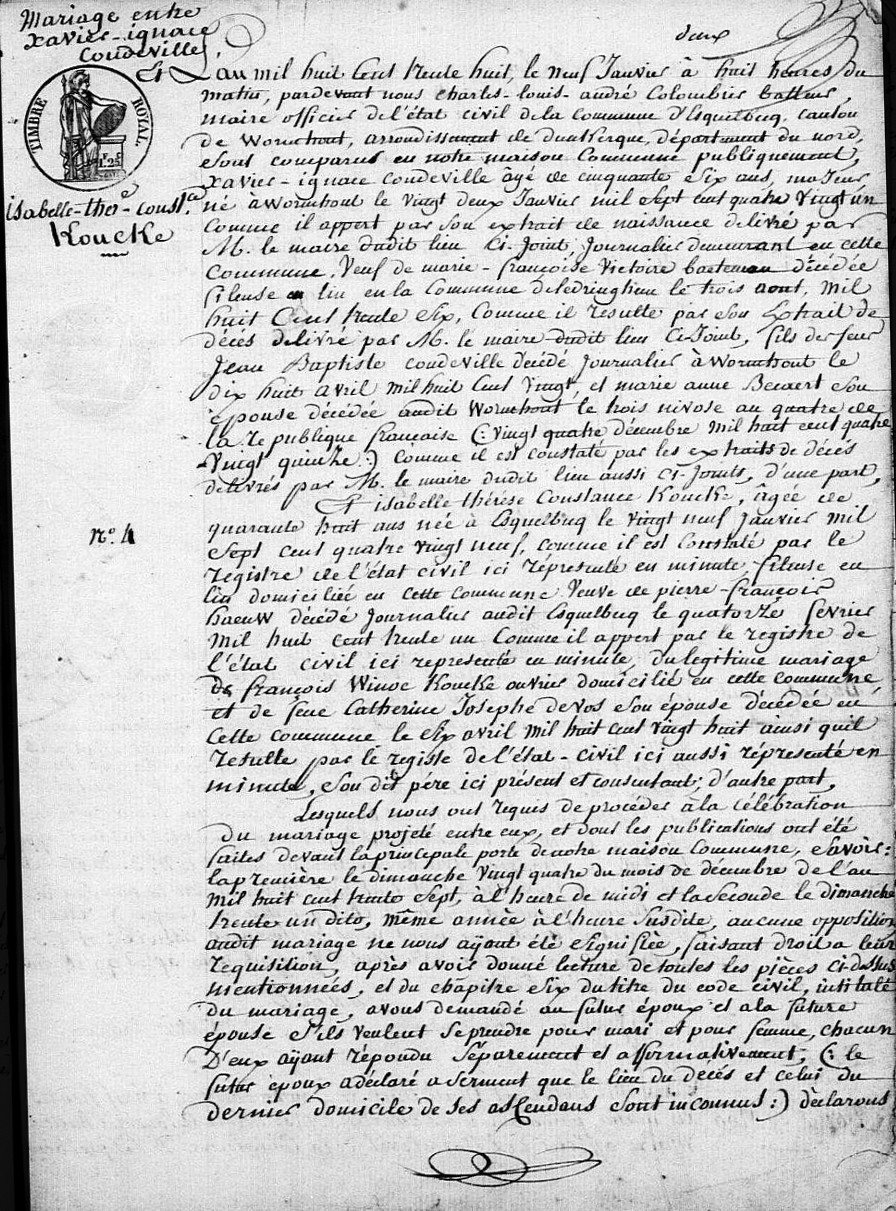 Mariage entre
xavier-ignace
Coudeville
Et
TIMBRE ROYAL
isabelle-thère-const.ce
Koucke
deux
L'an mil huit Cent trente huit, le neuf Janvier à huit heures du
matin, pardevant nous charles-louis-andré Colombier batteur,
maire officier de l'état civil de la Commune d'Esquelbecq, canton
de Wormhout, arrondissement de dunkerque, département du nord,
sont comparus en notre maison Commune publiquement,
xavier-ignace Coudeville âgé de cinquante six ans, majeur
né à Wormhout le vingt deux Janvier mil sept cent quatre vingt un
comme il appert par son extrait de naissance delivré par
M. le maire dudit lieu Ci-Joint, Journalier demeurant en cette
Commune, Veuf de marie-françoise Victoire baeteman décédée
fileuse en lin en la Commune de ledringhem le trois aout, mil
huit Cent trente six, Comme il resulte par son Extrait de
décès delivré par M. le maire dudit lieu Ci-Joint, fils de feu
Jean Baptiste Coudeville décédé Journalier à Wormhout le
dix huit avril mil huit Cent vingt, et marie anne Becaert son
épouse décédée audit Wormhout le trois nivose an quatre de
la republique française (: vingt quatre décembre mil huit cent quatre
vingt quinze :) comme il est constaté par les extraits de décès
délivrés par M. le maire dudit lieu aussi ci-joints, d'une part,
Et isabelle thérèse Constance Koucke, âgée de
quarante huit ans née à Esquelbecq le vingt neuf Janvier mil
sept cent quatre vingt neuf, comme il est Constaté par le
registre de l'état civil ici réprésenté en minute, fileuse en
lin domiciliée en cette commune Veuve de pierre-françois
haeuw décédé Journalier audit Esquelbecq le quatorze fevrier
mil huit cent trente un Comme il appert par le registre de
l'état civil ici représenté en minute, du légitime mariage
de françois Winoc Koucke ouvrier domicilié en cette commune
et de feue Catherine Josephe devos son épouse décédée en
Cette commune le six avril mil huit cent vingt huit ainsi qu'il
resulte par le registe de l'état-civil ici aussi réprésenté en
minute, son dit père ici présent et consentant; d'autre part,
Lesquels nous ont requis de procéder à la célébration
du mariage projeté entre eux, et dont les publications ont été
faites devant la principale porte de notre maison Commune, savoir:
la première le dimanche vingt quatre du mois de décembre de l'an
mil huit cent trente sept, à l'heure de midi et la seconde le dimanche
trente un dito, même année à l'heure susdite, aucune opposition
audit mariage ne nous ayant été signifiée, faisant droit a leur
requisition, après avoir donné lecture de toutes les pièces ci-dessus
mentionnées, et du chapitre six du titre du code civil, intitulé
du mariage, avons demandé au futur époux et a la future
épouse s'ils veulent se prendre pour mari et pour femme, chacun
D'eux ayant répondu séparement et affirmativement; (: le
futur époux a déclaré a serment que le lieu du decès et celui du
dernier domicile de ses ascendans sont inconnus :) déclarons
n.o 4